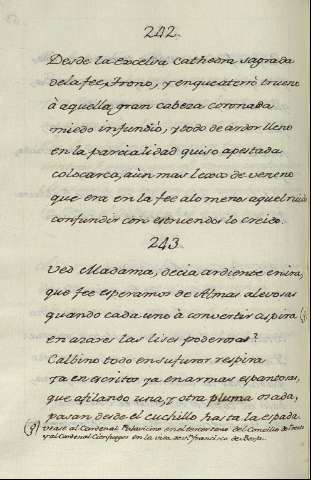 242.
Desde la excelsa cathedra sagrada
de la fee trono, y en que aterró trueno
à aquella gran cabeza coronada
miedo infundió, y todo de ardor lleno
en la parcialidad quiso apestada
colocarca, aùn mas lexos de veneno
que era en la fee alomenos aquel ruido
confundir con estruendos lo creido.
243.
Ved Madama, decia ardiente en ira,
que fee esperamos de Almas alevosas
quando cada uno à convertir aspira (3)
en azares las lises poderosas?
Calbino todo en su furor respira
ya en escritos ya en armas espantosas,
que afilando una, y otra pluma osada,
pasan desde el cuchillo hasta la espada.
(3) vease al Cardenal Palavicino en el tercer tomo del Concilio de Trento
y al Cardenal Cienfuegos en la vida de Sn. Francisco de Borja.